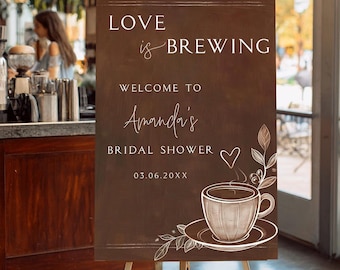 LOVE
is BREWING
WELCOME TO
Amanda's
BRIDAL SHOWER
03.06.20XX